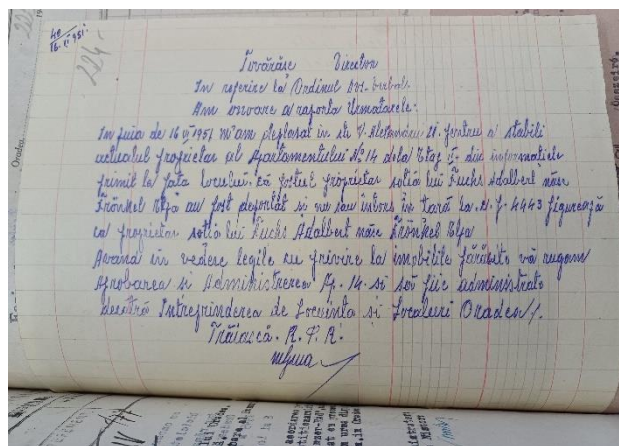 40
16.VI.951.
224-
Tovarăşe Director
In referire la Ordinul Dvs. verbal.
Am onoare a raporta Urmatarele:
In ziua de 16 VI 1951 m'am deplasat in str V. Alecsandru 28. pentru a stabili
actualul proprietar al Apartamentului No 14 dela Etaj II. din informatiele
primit la fata locului. că fostul proprietar sotia lui Fuchs Adalbert născ
Frönkel Elza au fost deportat si nu sau intors in tară La. C. f. 4443 figurează
ca proprietar sotia lui Fuchs Adalbert născ Frönkel Elza
Avănd in vedere legile cu privire la imobilile părăsite vă rugam
Aprobarea si Administrerea Ap. 14. si să fiic administrato
decătră Intreprinderea de Locuinta si Localuri Oradea/.
Trăiască. R. P. R.